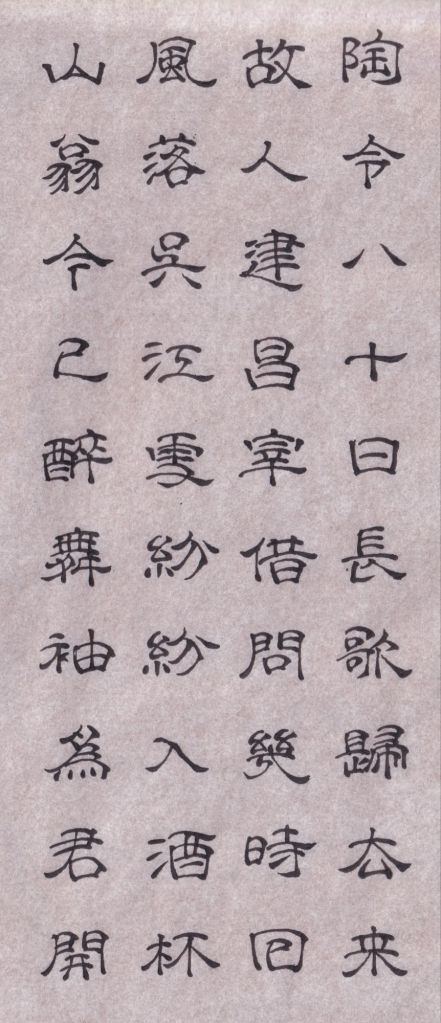 陶令八十日長歌歸去来
故人建昌宰借問幾時回
風落吳江雪紛紛入酒杯
山翁今已醉舞袖為君開